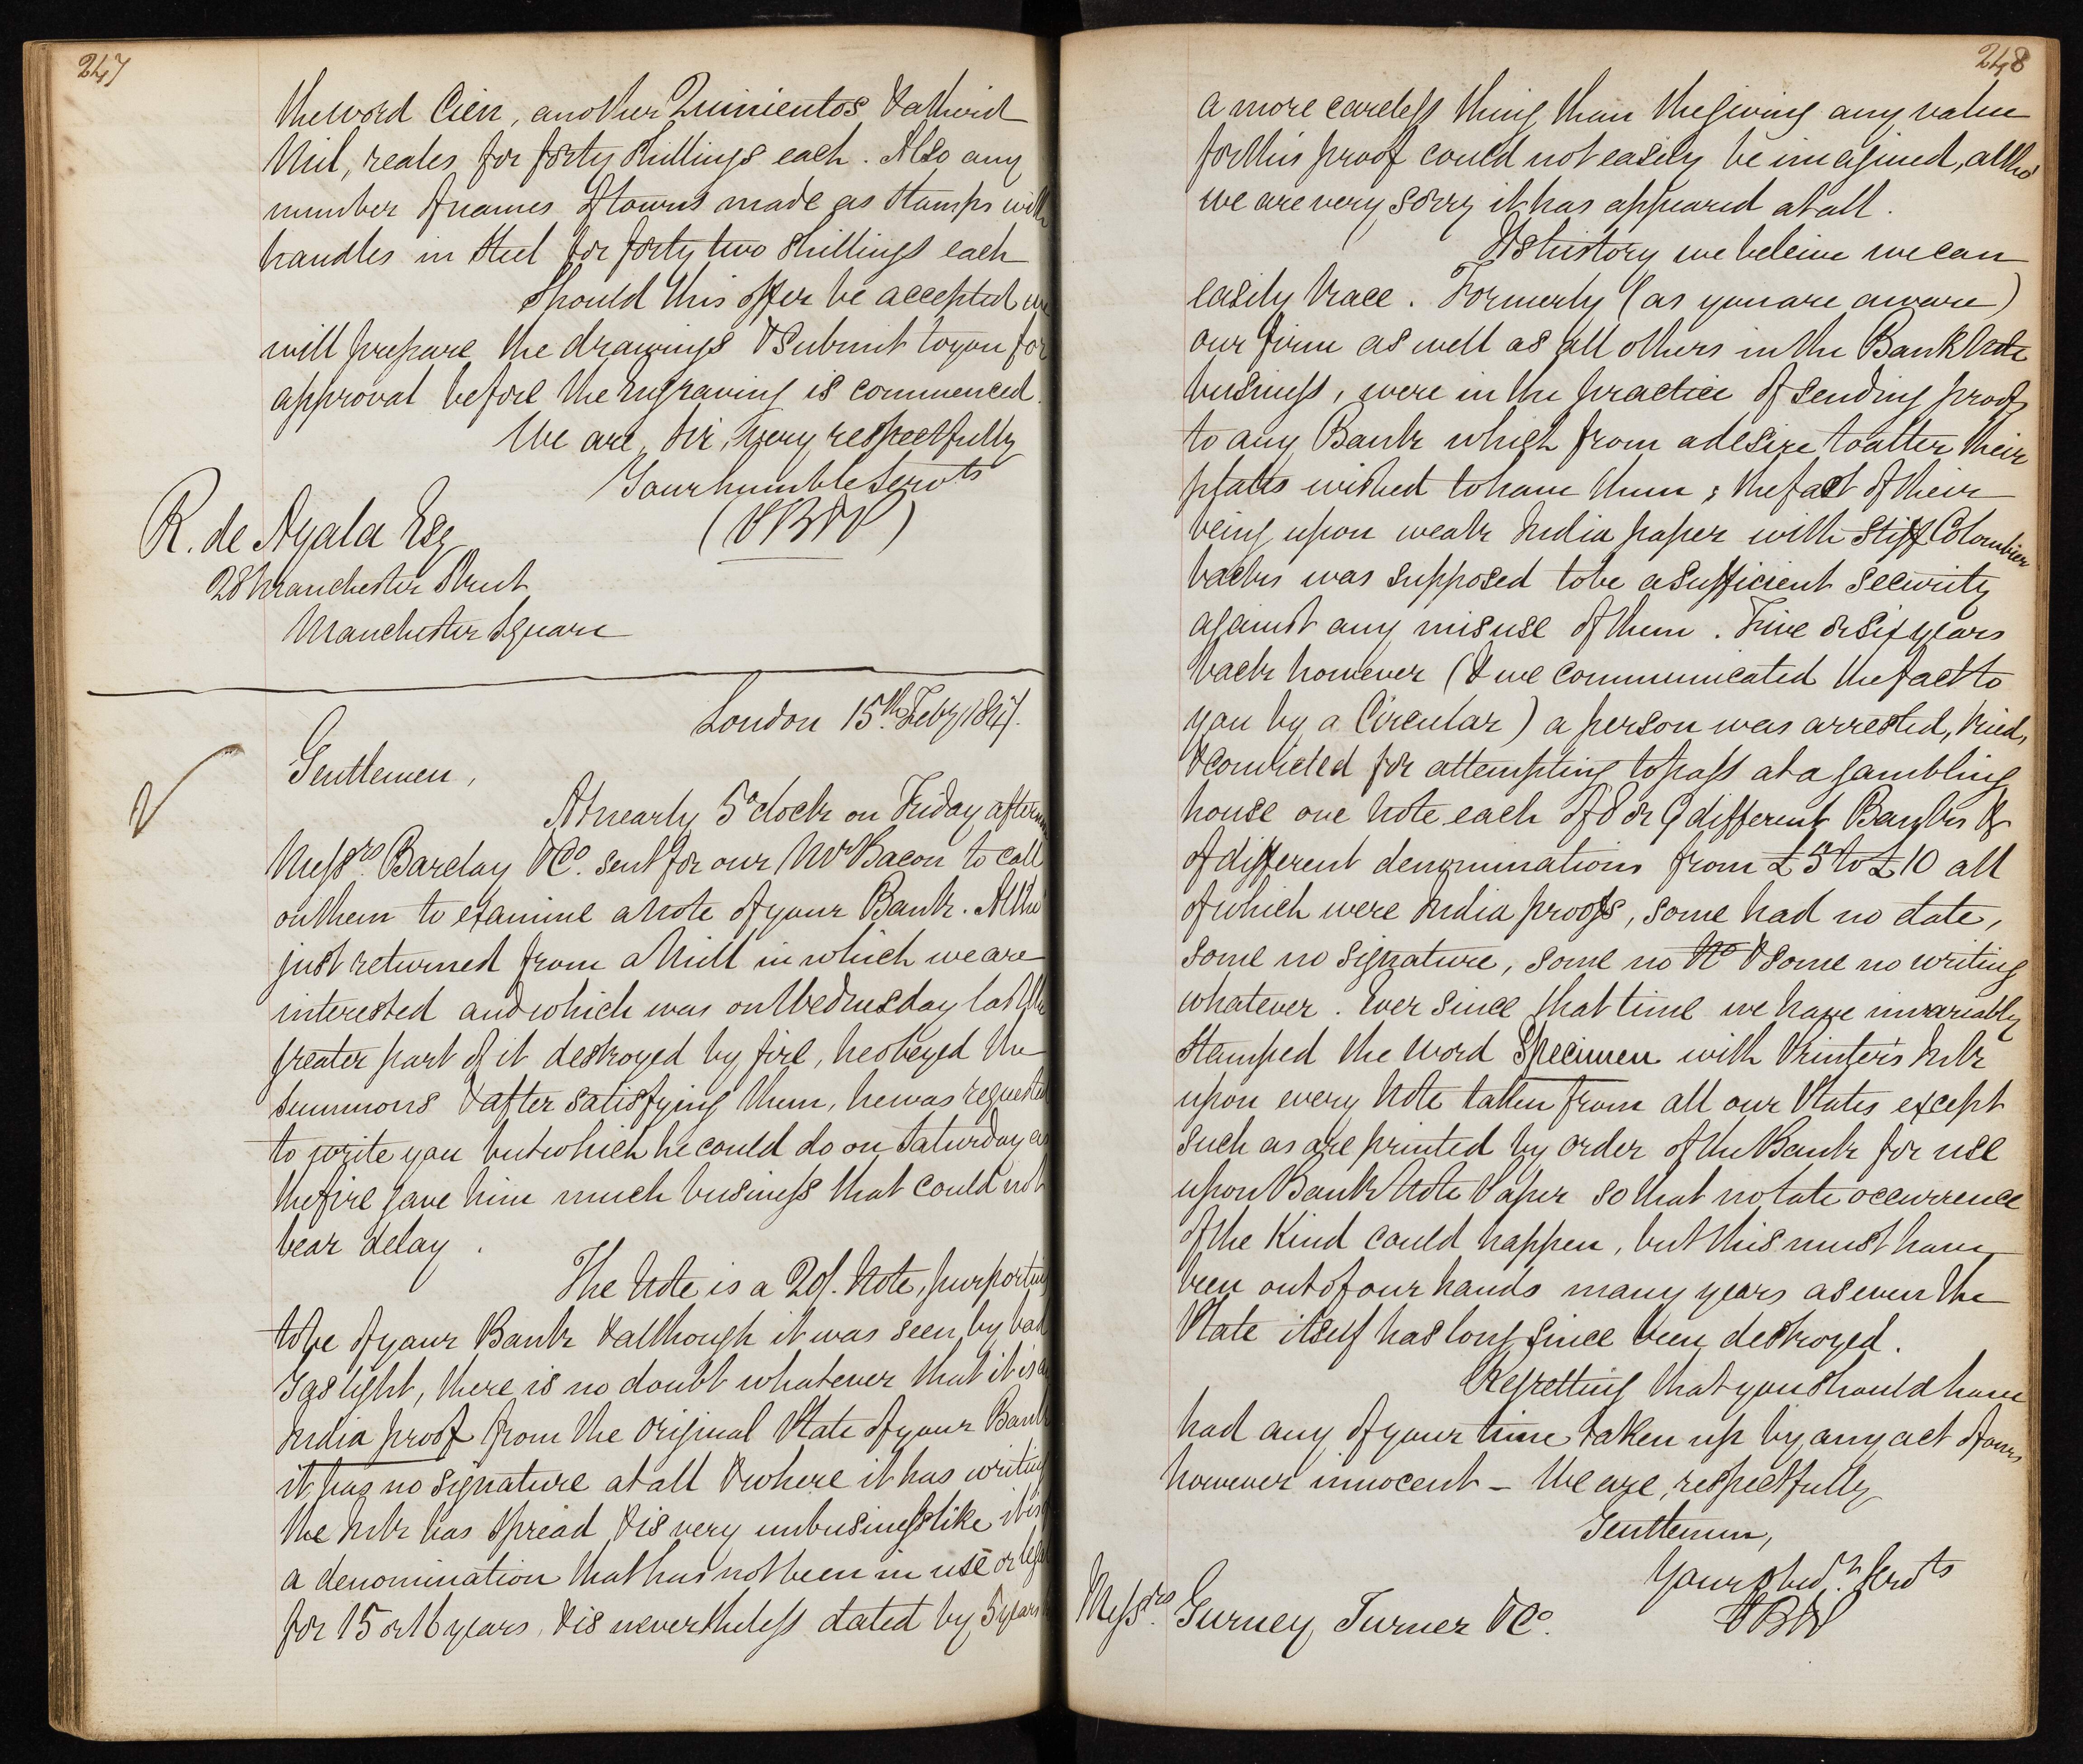 247
the word Cien, another Quinientos & a third
Mil, reales for forty shillings each. Also any
number of names of towns made as stamps with
handles in steel for forty two shillings each
Should this offer be accepted we
will prepare the drawings & submit to you for
approval before the engraving is commenced.
We are, Sir, very respectfully
Your humble Servts
(PB&P)
R. de Ayala Esq
28 Manchester Street
Manchester Square
London 15th Feby 1847.
Gentlemen,
At nearly 5 o'clock on Friday aftern
Messrs. Barclay & Co. sent for our Mr Bacon to call
on them to examine a note of your Bank. Altho'
just returned from a Mill in which we are
interested and which was on Wednesday last the
greater part of it destroyed by fire, he obeyed the
summons & after satisfying them, he was requested
to write you but which he could do on Saturday as
the fire gave him much business that could not
bear delay.
The Note is a 20/. Note, purporting
to be of your Bank & although it was seen by bad
Gas light, there is no doubt whatever that it is an
India proof from the original Plate of your Bank
it has no signature at all & where it has writing
the Ink has spread & is very unbusinesslike it is
a denomination that has not been in use or legal
for 15 or 16 years, & is nevertheless dated by 5 years
248
a more careless thing than the giving any value
for this proof could not easily be imagined, altho'
we are very sorry it has appeared at all.
Its history we beleive we can
easily trace. Formerly (as you are aware)
our firm as well as all others in the Bank Note
business, were in the practice of sending proofs
to any Bank which from a desire to alter their
plates wished to have them; the fact of their
being upon weak India paper with stiff Colombier
backs was supposed to be a sufficient security
against any misuse of them. Five or six years
back however (& we communicated the fact to
you by a Circular) a person was arrested, tried,
& convicted for attempting to pass at a gambling
house one note each of 8 or 9 different Banks &
of different denominations from £5 to £10 all
of which were India proofs, some had no date,
some no signature, some no No & some no writing
whatever. Ever since that time we have invariably
stamped the word Specimen with Printer's Ink
upon every Note taken from all our Plates except
such as are printed by order of the Bank for use
upon Bank Note Paper so that no late occurrence
of the Kind could happen, but this must have
been out of our hands many years as even the
Plate itself has long since been destroyed.
Regretting that you should have
had any of your time taken up by any act of ours
however innocent – We are, respectfully
Gentlemen,
Your obedn. Servts
PB&P
Messrs. Gurney, Turner & Co.